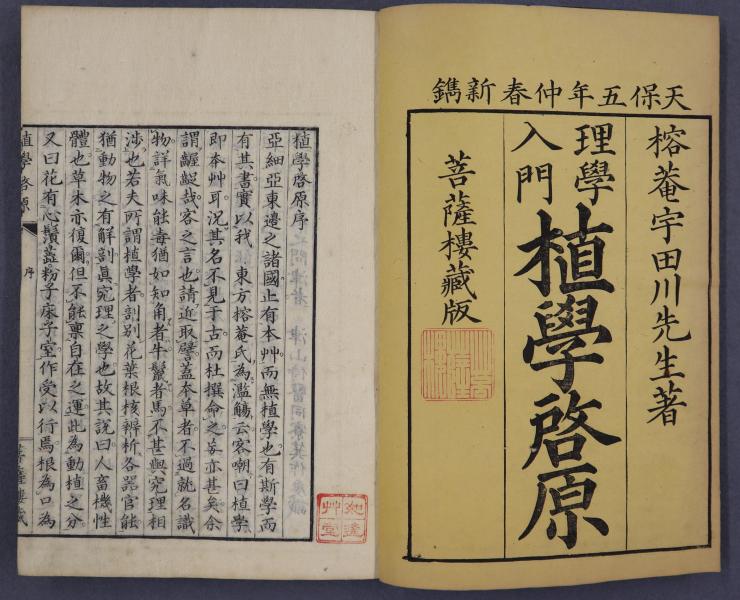 天保五年仲春新鐫
榕菴宇田川先生著
理學
入門
植學啓原
菩薩樓藏版
植學啓原序
亞細亞東邊之諸國止有本艸而無植學也有斯學而
有其書實以我東方榕菴氏為濫觴云客嘲曰植學
即本艸耳況其名不見于古而杜撰命之妄亦甚矣余
謂齷齪哉客之言也請近取譬蓋本草者不過就名識
物詳氣味能毒猶如知角者牛鬣者馬不甚與究理相
渉也若夫所謂植學者剖別花葉根核辨析各器官能
猶動物之有解剖眞究理之學也故其說曰人畜機性
體也草木亦復爾但不能稟自在之運此為動植之分
又曰花有心鬚蕋粉子床子室作受以行焉根為口為
植學啓原
序
菩薩樓藏